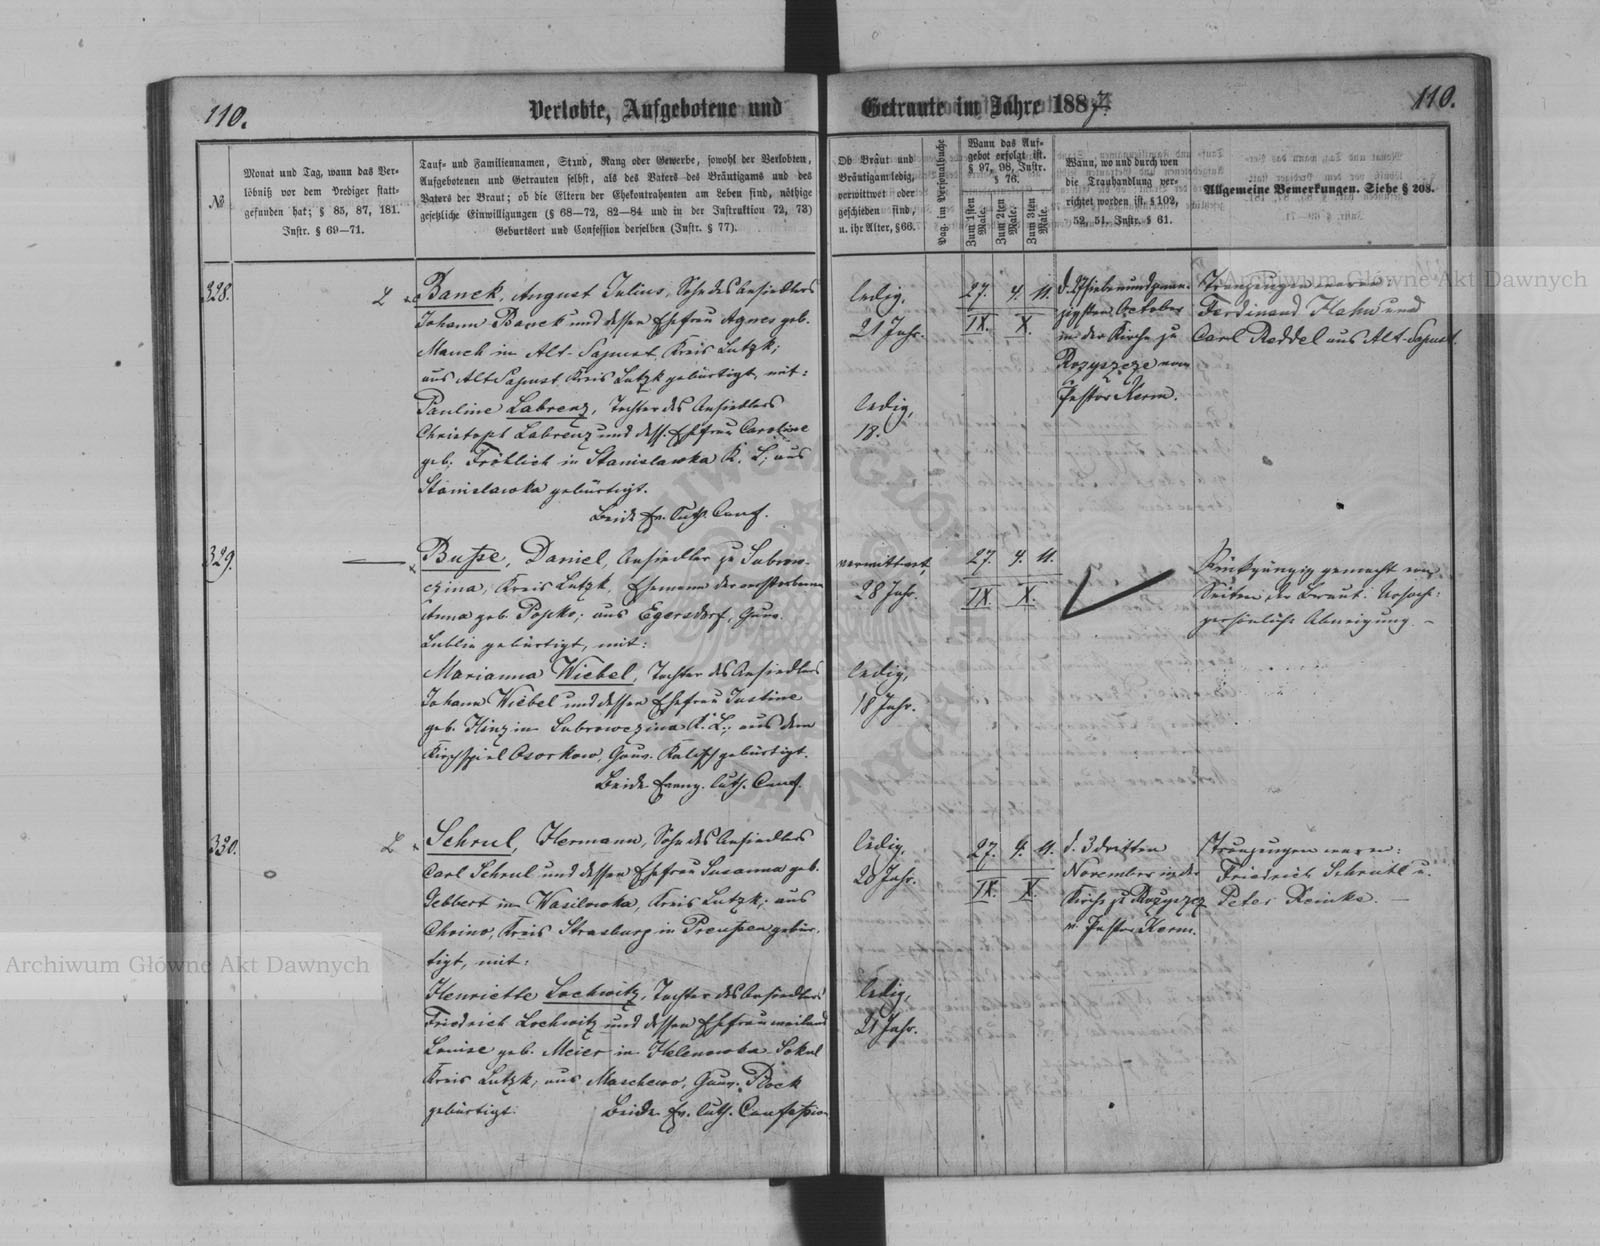 110.
Verlobte, Aufgebotene und
Getraute im Jahre 1887.
110.
№
Monat und Tag, wann das Ver-
löbniß vor dem Prediger statt-
gefunden hat; § 85, 87, 181.
Instr. § 69—71.
Tauf- und Familiennamen, Stand, Rang oder Gewerbe, sowohl der Verlobten,
Aufgebotenen und Getrauten selbst, als des Vaters des Bräutigams und des
Vaters der Braut; ob die Eltern der Ehekontrahenten am Leben sind, nöthige
gesetzliche Einwilligungen (§ 68—72, 82—84 und in der Instruktion 72, 73)
Geburtsort und Confession derselben (Instr. § 77).
Ob Braut und
Bräutigam ledig,
verwittwet oder
geschieden sind,
u. ihr Alter, § 66.
Pag. im Personalbuche
Wann das Auf-
gebot erfolgt ist.
§ 97, 98, Instr.
§ 76.
Zum 1sten Male.
Zum 2ten Male.
Zum 3ten Male.
Wann, wo und durch wen
die Trauhandlung ver-
richtet worden ist. § 102,
52, 51. Instr. § 61.
Allgemeine Bemerkungen. Siehe § 208.
328.
Banek, August Julius, Sohn des Ansiedlers
Johann Banek und dessen Ehefrau Agnes geb.
Manch in Alt-Sapust, Kreis Lutzk;
aus Alt Sapust, Kreis Lutzk gebürtigt, mit:
Pauline Labrenz, Tochter des Ansiedlers
Christoph Labrenz und dess. Ehefrau Caroline
geb. Fröhlich in Stanislawka K. L.; aus
Stanislawka gebürtigt.
Beide Ev. Luth. Conf.
ledig,
21 Jahr.
ledig,
18.
27. 4. 11.
IX. X.
d. 27 sieben und zwan-
zigsten October
in der Kirche zu
Rozyszcze vom
Pastor Kerm.
Trauzeugen waren:
Ferdinand Hahn und
Carl Reddel aus Alt-Sapust.
329.
Buße, Daniel, Ansiedler zu Dubrow-
czina, Kreis Lutzk, Ehemann der verstorbenen
Anna geb. Popko; aus Egersdorf, Gouv.
Lublin gebürtigt, mit:
Marianna Wiebel, Tochter des Ansiedlers
Johann Wiebel und dessen Ehefrau Justine
geb. Hinz in Dubrowczina K. L.; aus dem
Kirchspiel Osorkow, Gouv. Kalisch gebürtigt.
Beide Evang. Luth. Conf.
verwittwet,
28 Jahr.
ledig,
18 Jahr.
27. 4. 11.
IX. X.
Rückgängig gemacht von
Seiten der Braut. Ursache:
persönliche Abneigung. —
330.
Schrul, Hermann, Sohn des Ansiedlers
Carl Schrul und dessen Ehefrau Susanna geb.
Gebbert in Wasilowka, Kreis Lutzk; aus
Choino, Kreis Strasburg in Preußen gebür-
tigt, mit:
Henriette Lochwitz, Tochter des Ansiedlers
Friedrich Lochwitz und dessen Ehefrau weiland
Louise geb. Meier in Helenowka Sokul
Kreis Lutzk, aus Maschewo, Gouv. Plock
gebürtigt. Beide Ev. Luth. Confession
ledig,
20 Jahr.
ledig,
21 Jahr.
27. 4. 11.
IX. X.
d. 3 dritten
November in der
Kirche zu Rozyszcz
v. Pastor Kerm.
Trauzeugen waren:
Friedrich Schrull u.
Peter Reinke. —
Archiwum Główne Akt Dawnych
Archiwum Główne Akt Dawnych